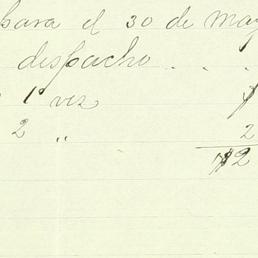 para el 30 de May
despacho . . .
1ª vez
2 " 2
$2